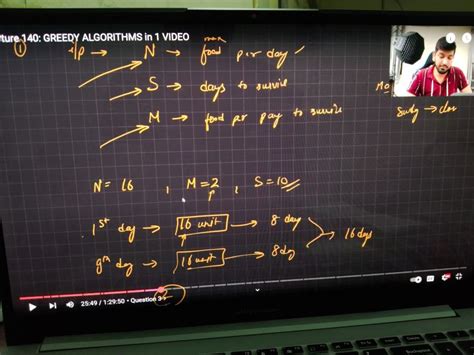 ture 140: GREEDY ALGORITHMS in 1 VIDEO
1 i/p → N → max food per day ✓
S → days to survive
M → food per pay to survive
Sunday → clos
N = 16 , M = 2 , S = 10
1st day → 16 unit → 8 day
16 days
9th day → 16 unit → 8 day
25:49 / 1:29:50 • Question 3